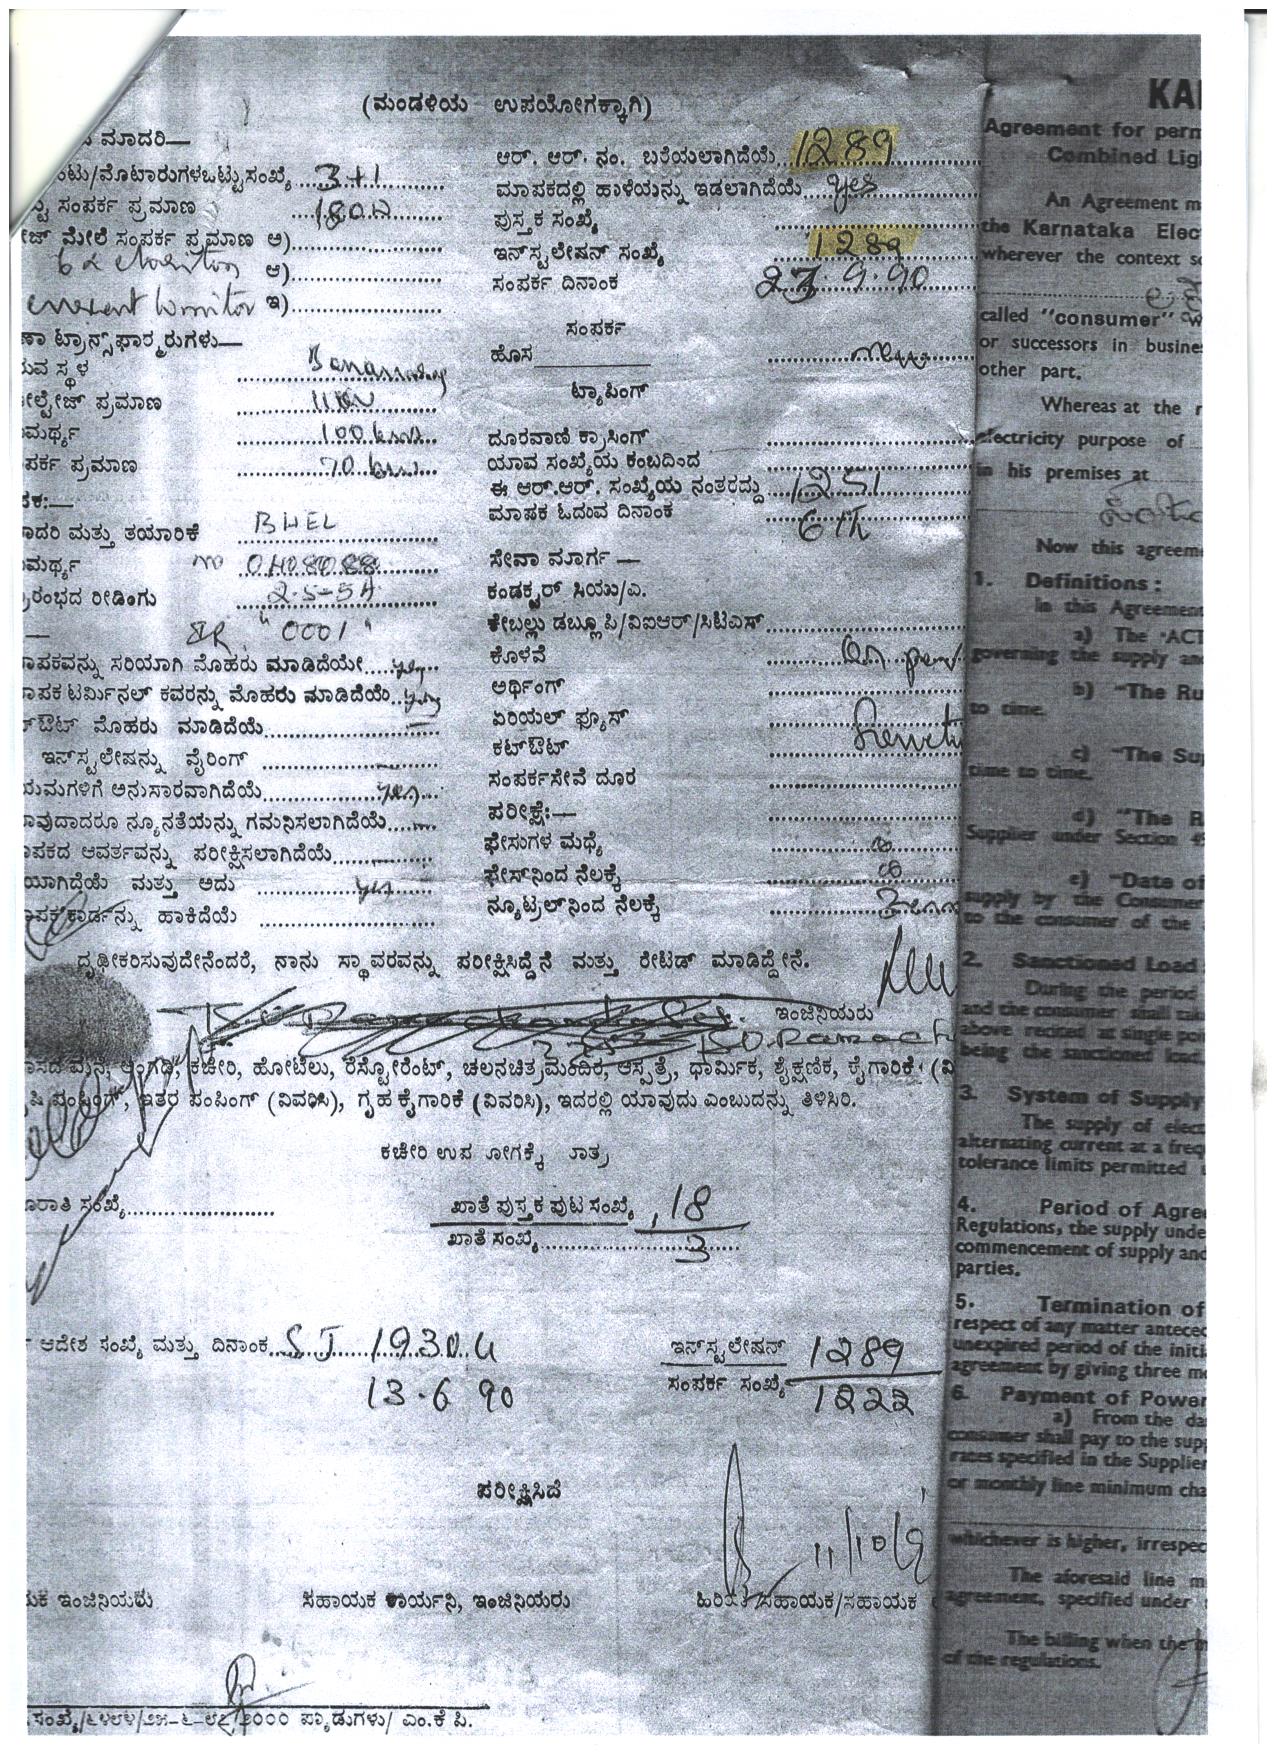 (ಮಂಡಳಿಯ ಉಪಯೋಗಕ್ಕಾಗಿ)
ಮಾದರಿ—
ಂಟು/ಮೋಟಾರುಗಳ ಒಟ್ಟು ಸಂಖ್ಯೆ 3+1
ಸಂಪರ್ಕ ಪ್ರಮಾಣ 180W
ೇಜ್ ಮೇಲೆ ಸಂಪರ್ಕ ಪ್ರಮಾಣ ಅ)
ಆ)
ಇ)
ಣಾ ಟ್ರಾನ್ಸ್‌ಫಾರ್ಮರುಗಳು—
ರುವ ಸ್ಥಳ
ೋಲ್ಟೇಜ್ ಪ್ರಮಾಣ 11KV
ಮರ್ಥ್ಯ 100
ಪರ್ಕ ಪ್ರಮಾಣ 70
ಾದರಿ ಮತ್ತು ತಯಾರಿಕೆ BHEL
ಮರ್ಥ್ಯ
ರಂಭದ ರೀಡಿಂಗು 2.5-5A
"0001"
ಾಪಕವನ್ನು ಸರಿಯಾಗಿ ಮೊಹರು ಮಾಡಿದೆಯೇ yes
ಾಪಕ ಟರ್ಮಿನಲ್ ಕವರನ್ನು ಮೊಹರು ಮಾಡಿದೆಯೆ yes
ಟ್‌ಔಟ್ ಮೊಹರು ಮಾಡಿದೆಯೆ
ಇನ್‌ಸ್ಟಲೇಷನ್ನು ವೈರಿಂಗ್
ಯಮಗಳಿಗೆ ಅನುಸಾರವಾಗಿದೆಯೆ yes
ಾವುದಾದರೂ ನ್ಯೂನತೆಯನ್ನು ಗಮನಿಸಲಾಗಿದೆಯೆ
ಾಪಕದ ಆವರ್ತವನ್ನು ಪರೀಕ್ಷಿಸಲಾಗಿದೆಯೆ
ಯಾಗಿದೆಯೆ ಮತ್ತು ಅದು yes
ಾಪಕ ಕಾರ್ಡನ್ನು ಹಾಕಿದೆಯೆ
ಆರ್. ಆರ್. ನಂ. ಬರೆಯಲಾಗಿದೆಯೆ 1289
ಮಾಪಕದಲ್ಲಿ ಹಾಳೆಯನ್ನು ಇಡಲಾಗಿದೆಯೆ yes
ಪುಸ್ತಕ ಸಂಖ್ಯೆ
ಇನ್‌ಸ್ಟಲೇಷನ್ ಸಂಖ್ಯೆ 1289
ಸಂಪರ್ಕ ದಿನಾಂಕ 23.9.90
ಸಂಪರ್ಕ
ಹೊಸ new
ಟ್ಯಾಪಿಂಗ್
ದೂರವಾಣಿ ಕ್ರಾಸಿಂಗ್
ಯಾವ ಸಂಖ್ಯೆಯ ಕಂಬದಿಂದ
ಈ ಆರ್.ಆರ್. ಸಂಖ್ಯೆಯ ನಂತರದ್ದು 1251
ಮಾಪಕ ಓದುವ ದಿನಾಂಕ 6th
ಸೇವಾ ಮಾರ್ಗ —
ಕಂಡಕ್ಟರ್ ಸಿಯು/ಎ.
ಕೇಬಲ್ಲು ಡಬ್ಲೂಪಿ/ವಿಐಆರ್/ಸಿಟಿಎಸ್
ಕೊಳವೆ
ಅರ್ಥಿಂಗ್
ಏರಿಯಲ್ ಫ್ಯೂಸ್
ಕಟ್‌ಔಟ್
ಸಂಪರ್ಕಸೇವೆ ದೂರ
ಪರೀಕ್ಷೆ:—
ಫೇಸುಗಳ ಮಧ್ಯೆ
ಫೇಸ್‌ನಿಂದ ನೆಲಕ್ಕೆ
ನ್ಯೂಟ್ರಲ್‌ನಿಂದ ನೆಲಕ್ಕೆ Zero
ದೃಢೀಕರಿಸುವುದೇನೆಂದರೆ, ನಾನು ಸ್ಥಾವರವನ್ನು ಪರೀಕ್ಷಿಸಿದ್ದೆನೆ ಮತ್ತು ರೇಟೆಡ್ ಮಾಡಿದ್ದೇನೆ.
ಇಂಜಿನಿಯರು
ಾಸದ ಮನೆ, ಅಂಗಡಿ, ಕಚೇರಿ, ಹೋಟೆಲು, ರೆಸ್ಟೋರೆಂಟ್, ಚಲನಚಿತ್ರಮಂದಿರ, ಆಸ್ಪತ್ರೆ, ಧಾರ್ಮಿಕ, ಶೈಕ್ಷಣಿಕ, ಕೈಗಾರಿಕೆ (ವಿ
ಷಿ ಪಂಪಿಂಗ್, ಇತರ ಪಂಪಿಂಗ್ (ವಿವರಿಸಿ), ಗೃಹ ಕೈಗಾರಿಕೆ (ವಿವರಿಸಿ), ಇದರಲ್ಲಿ ಯಾವುದು ಎಂಬುದನ್ನು ತಿಳಿಸಿರಿ.
ಕಚೇರಿ ಉಪ ೋಗಕ್ಕೆ ಾತ್ರ
ರಾತಿ ಸಂಖ್ಯೆ
ಖಾತೆ ಪುಸ್ತಕ ಪುಟ ಸಂಖ್ಯೆ 18
ಖಾತೆ ಸಂಖ್ಯೆ 3
ಆದೇಶ ಸಂಖ್ಯೆ ಮತ್ತು ದಿನಾಂಕ SJ 19304
13.6.90
ಇನ್‌ಸ್ಟಲೇಷನ್ 1289
ಸಂಪರ್ಕ ಸಂಖ್ಯೆ 1222
ಪರೀಕ್ಷಿಸಿದೆ
11/10/9
ಯಕ ಇಂಜಿನಿಯರು ಸಹಾಯಕ ಕಾರ್ಯನಿ, ಇಂಜಿನಿಯರು ಹಿರಿಯ ಸಹಾಯಕ/ಸಹಾಯಕ
ಸಂಖ್ಯೆ/೬೪೮೪/೨೫-೬-೮೬/೨೦೦೦ ಪ್ಯಾಡುಗಳು/ ಎಂ.ಕೆ ಪಿ.
KA
Agreement for perm
Combined Lig
An Agreement m
the Karnataka Elec
wherever the context s
called "consumer" w
or successors in busine
other part.
Whereas at the r
electricity purpose of
in his premises at
Now this agreem
1. Definitions :
In this Agreement
a) The 'ACT
governing the supply and
b) "The Ru
to time.
c) "The Su
time to time.
d) "The R
Supplier under Section 4
e) "Date of
supply by the Consumer
to the consumer of the
2. Sanctioned Load
During the period
and the consumer shall tak
above recited at single poi
being the sanctioned load.
3. System of Supply
The supply of elect
alternating current at a freq
tolerance limits permitted
4. Period of Agre
Regulations, the supply unde
commencement of supply and
parties.
5. Termination of
respect of any matter anteced
unexpired period of the initi
agreement by giving three m
6. Payment of Power
a) From the da
consumer shall pay to the sup
rates specified in the Supplier
or monthly line minimum cha
whichever is higher, irrespec
The aforesaid line m
agreement, specified under
The billing when the
of the regulations.